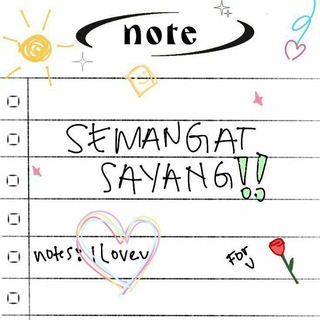 note
SEMANGAT
SAYANG!!
notes: I loveu
For u